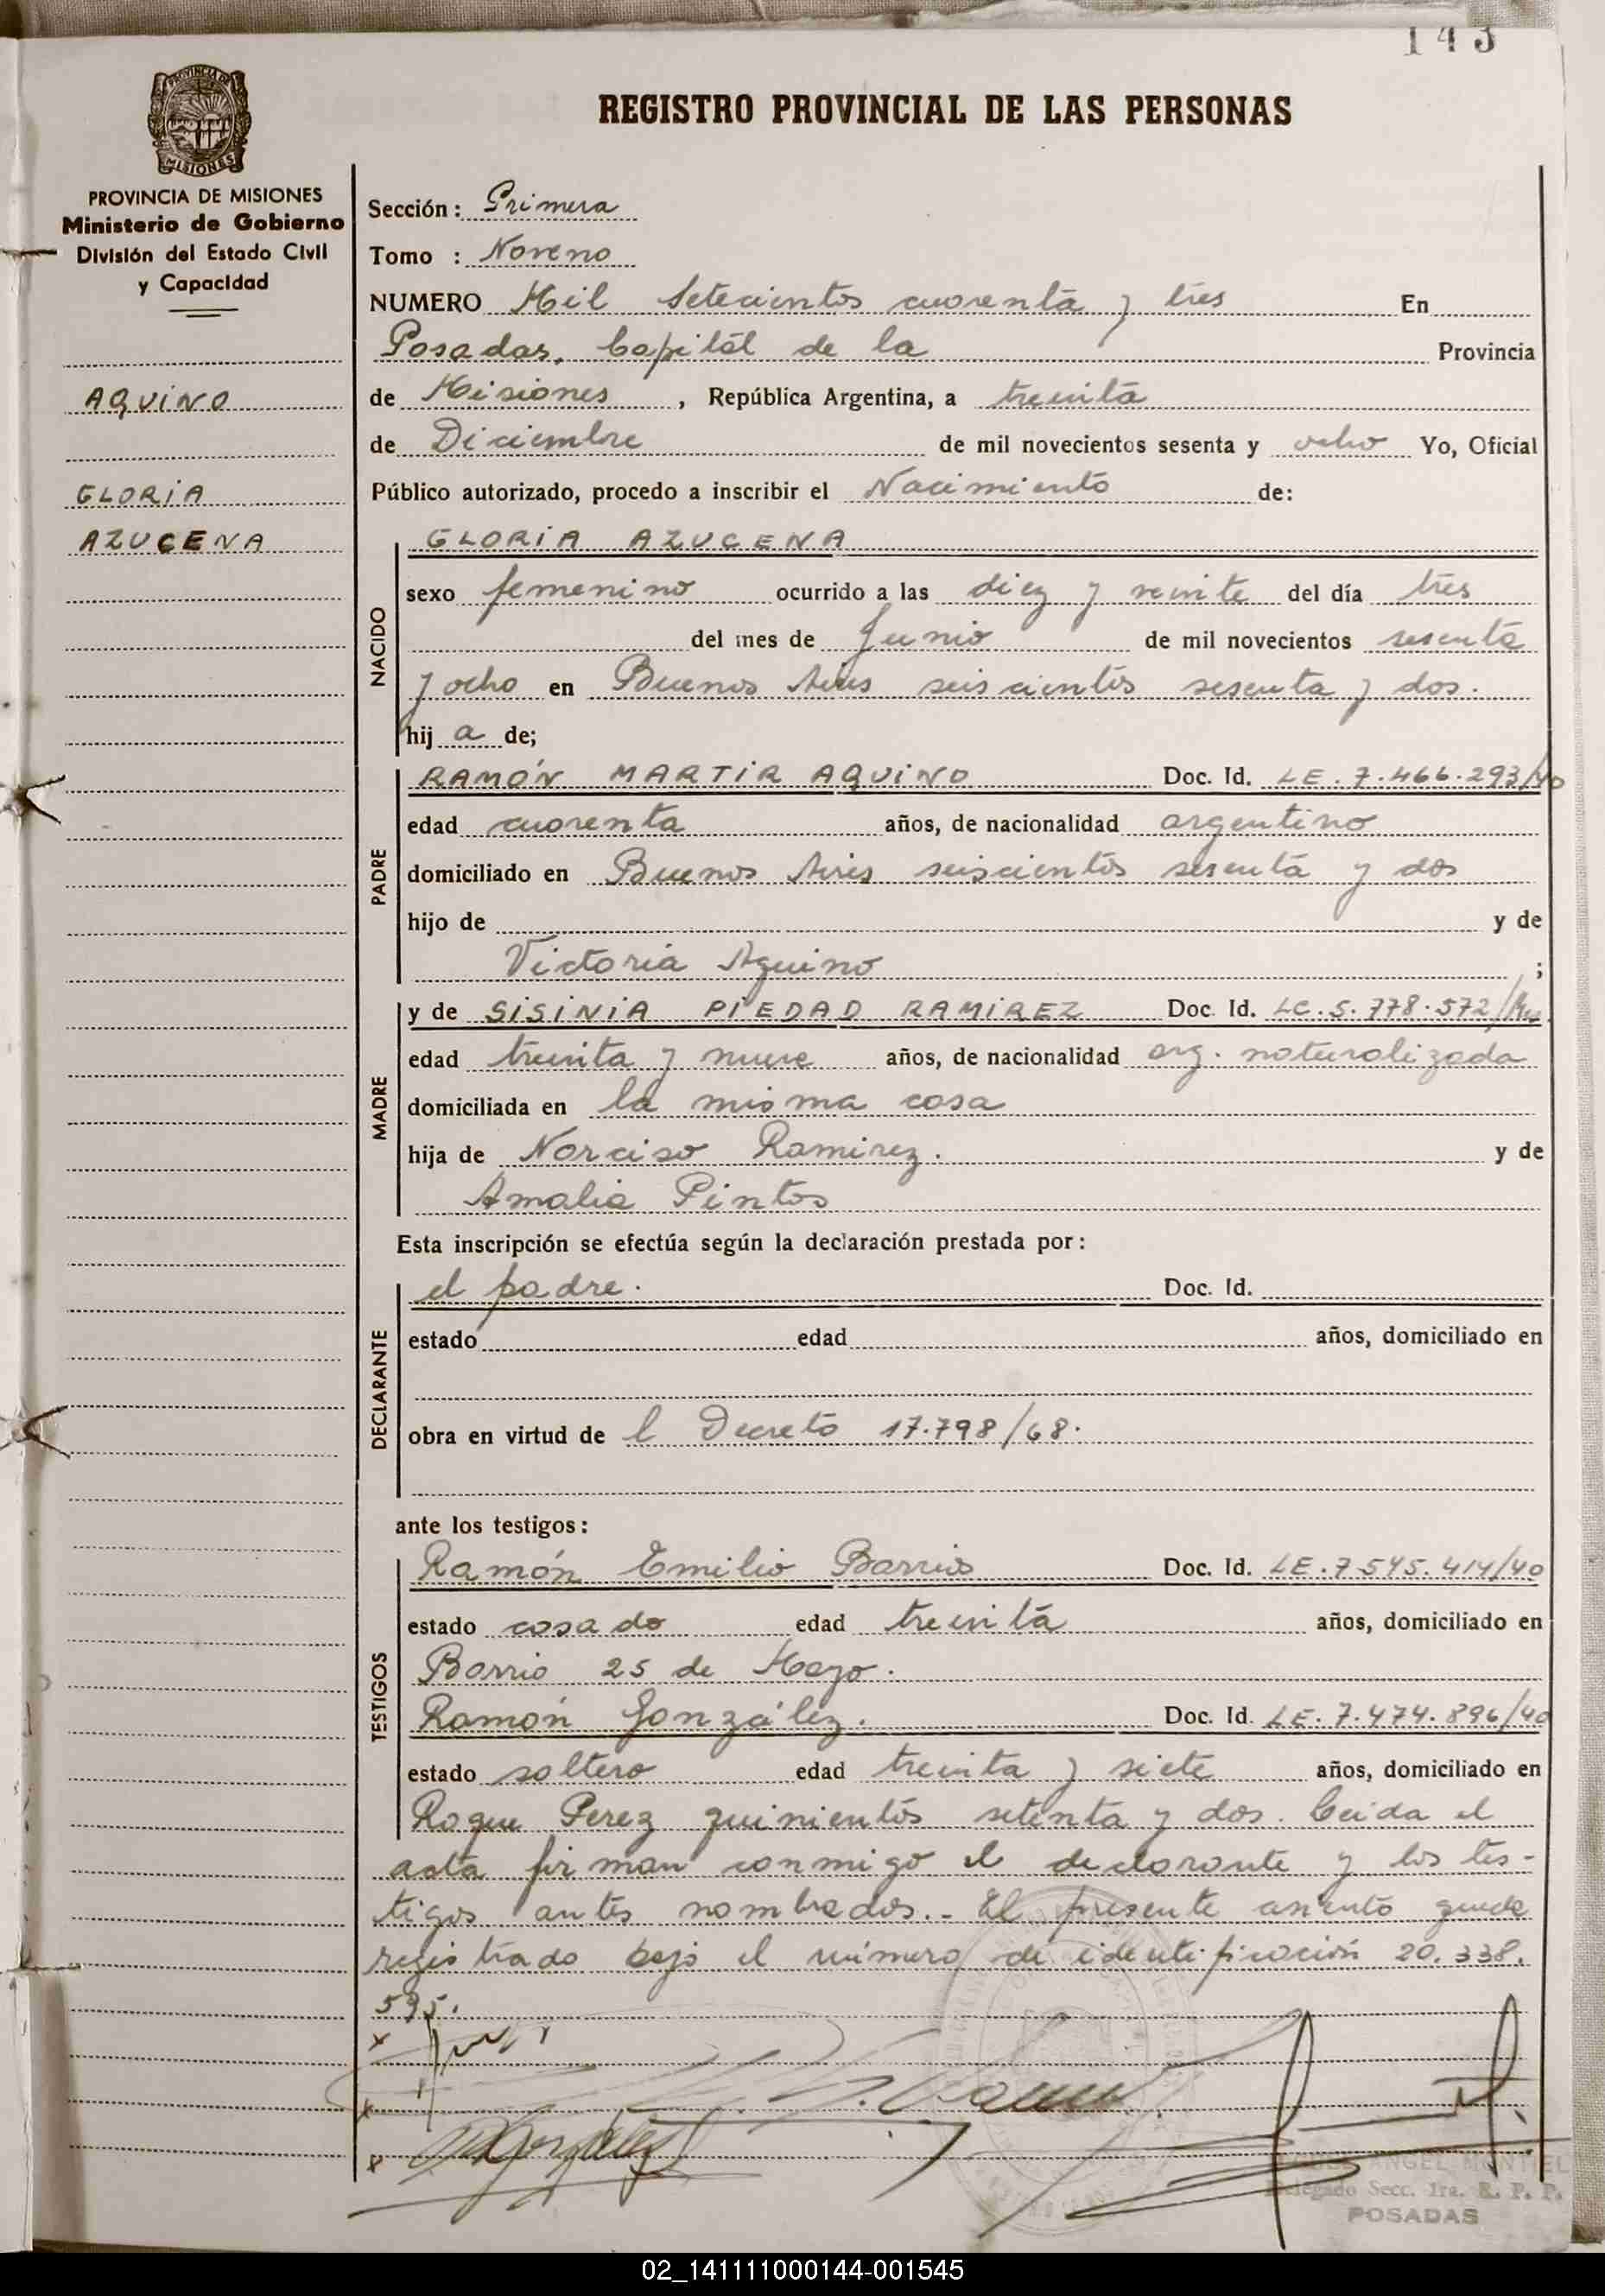 143
PROVINCIA DE
MISIONES
REGISTRO PROVINCIAL DE LAS PERSONAS
PROVINCIA DE MISIONES
Ministerio de Gobierno
División del Estado Civil
y Capacidad
AQUINO
GLORIA
AZUCENA
Sección: Primera
Tomo : Noveno
NUMERO Mil Setecientos cuarenta y tres En
Posadas, Capital de la Provincia
de Misiones, República Argentina, a treinta
de Diciembre de mil novecientos sesenta y ocho Yo, Oficial
Público autorizado, procedo a inscribir el Nacimiento de:
NACIDO
GLORIA AZUCENA
sexo femenino ocurrido a las diez y veinte del día tres
del mes de Junio de mil novecientos sesenta
y ocho en Buenos Aires seiscientos sesenta y dos.
hij a de;
PADRE
RAMÓN MARTIR AQUINO Doc. Id. LE. 7.466.293/40
edad cuarenta años, de nacionalidad argentino
domiciliado en Buenos Aires seiscientos sesenta y dos
hijo de y de
Victoria Aquino ;
MADRE
y de SISINIA PIEDAD RAMIREZ Doc. Id. LC. 5.778.572/
edad treinta y nueve años, de nacionalidad arg. naturalizada
domiciliada en la misma casa
hija de Narciso Ramirez. y de
Amalia Pintos
Esta inscripción se efectúa según la declaración prestada por:
DECLARANTE
el padre. Doc. Id.
estado edad años, domiciliado en
obra en virtud de l Decreto 17.798/68.
ante los testigos:
TESTIGOS
Ramón Emilio Barrios Doc. Id. LE. 7.545.414/40
estado casado edad treinta años, domiciliado en
Barrio 25 de Mayo.
Ramón González. Doc. Id. LE. 7.474.896/40
estado soltero edad treinta y siete años, domiciliado en
Roque Perez quinientos setenta y dos. Leida el
acta firman conmigo el declarante y los tes-
tigos antes nombrados.- El presente asiento queda
registrado bajo el número de identificación 20.338.
595.
ANGEL MONTIEL
Delegado Secc. 1ra. R. P. P.
POSADAS
02_141111000144-001545